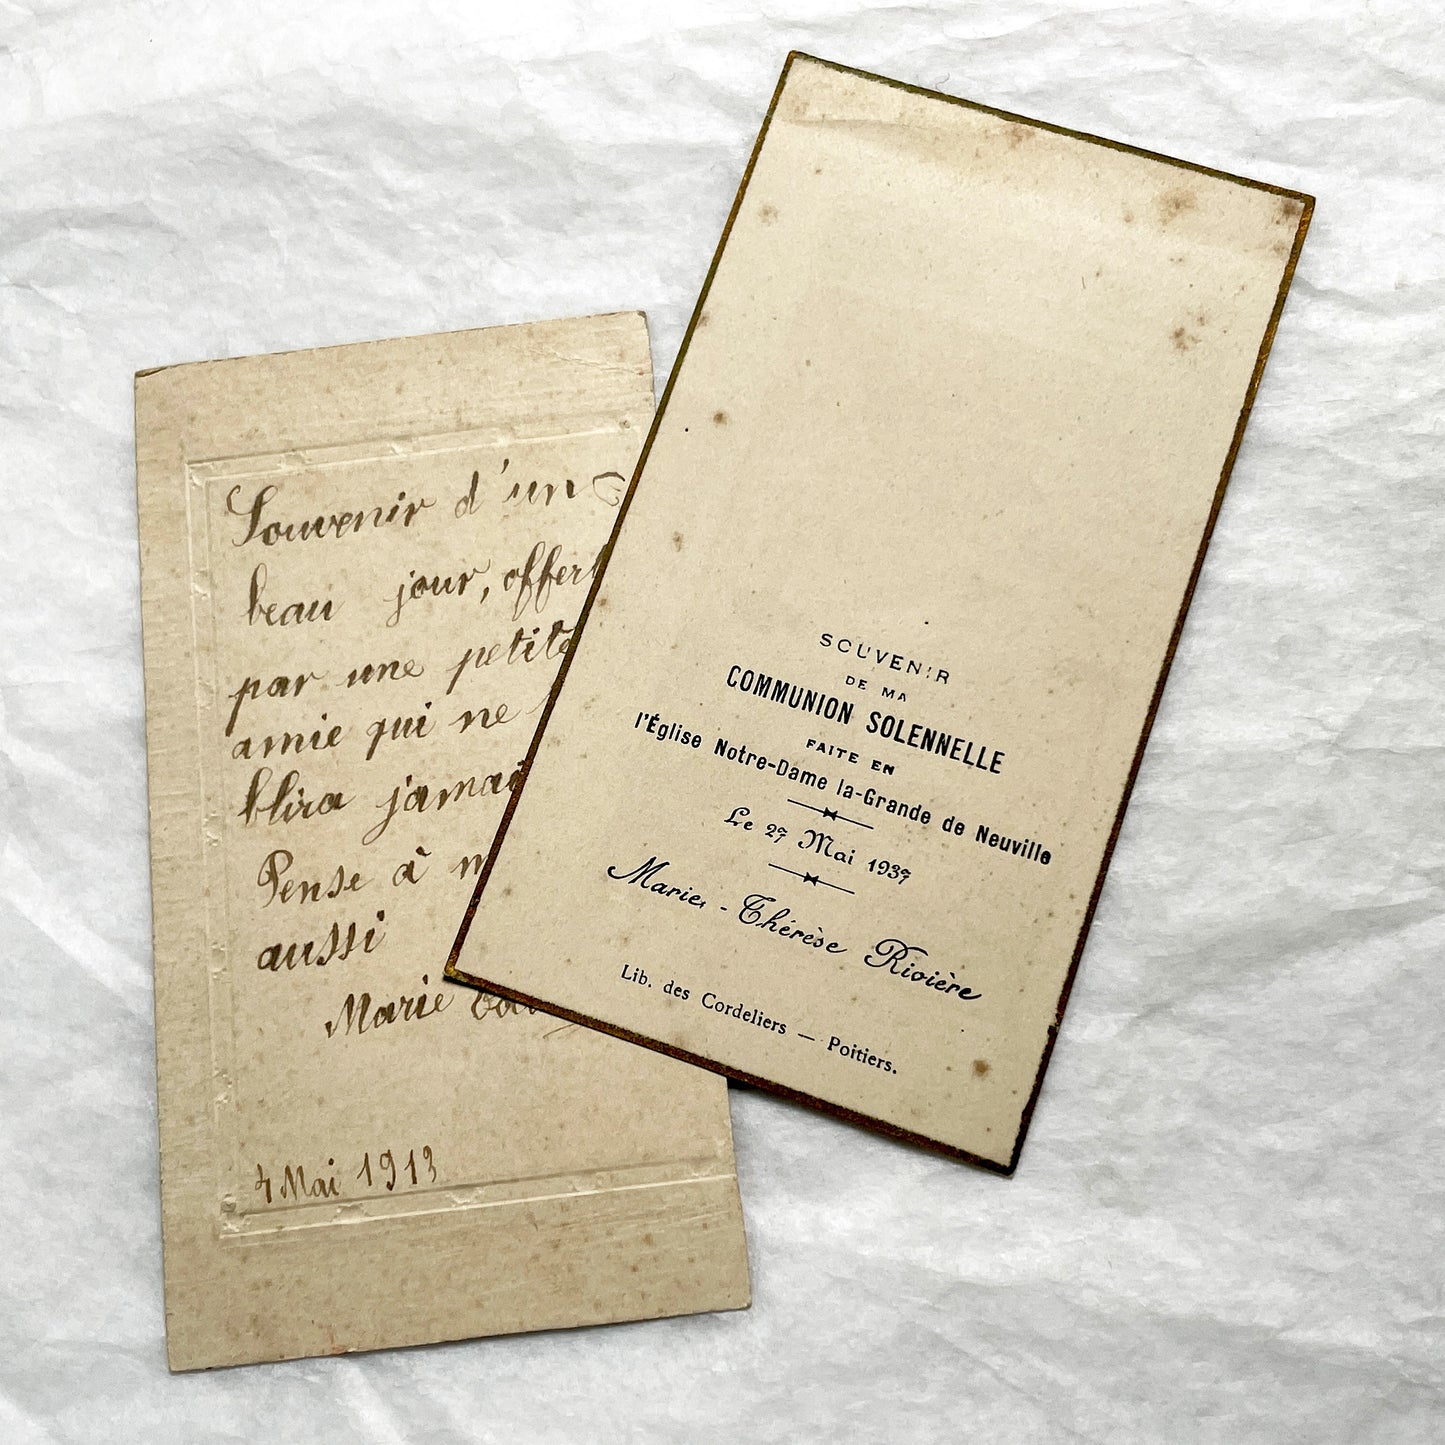 Souvenir d'un
beau jour, offert
par une petite
amie qui ne
blira jamais
Pense à
aussi
Marie
4 Mai 1913
SOUVENIR
DE MA
COMMUNION SOLENNELLE
FAITE EN
l'Église Notre-Dame la-Grande de Neuville
Le 27 Mai 1937
Marie-Thérèse Rivière
Lib. des Cordeliers — Poitiers.